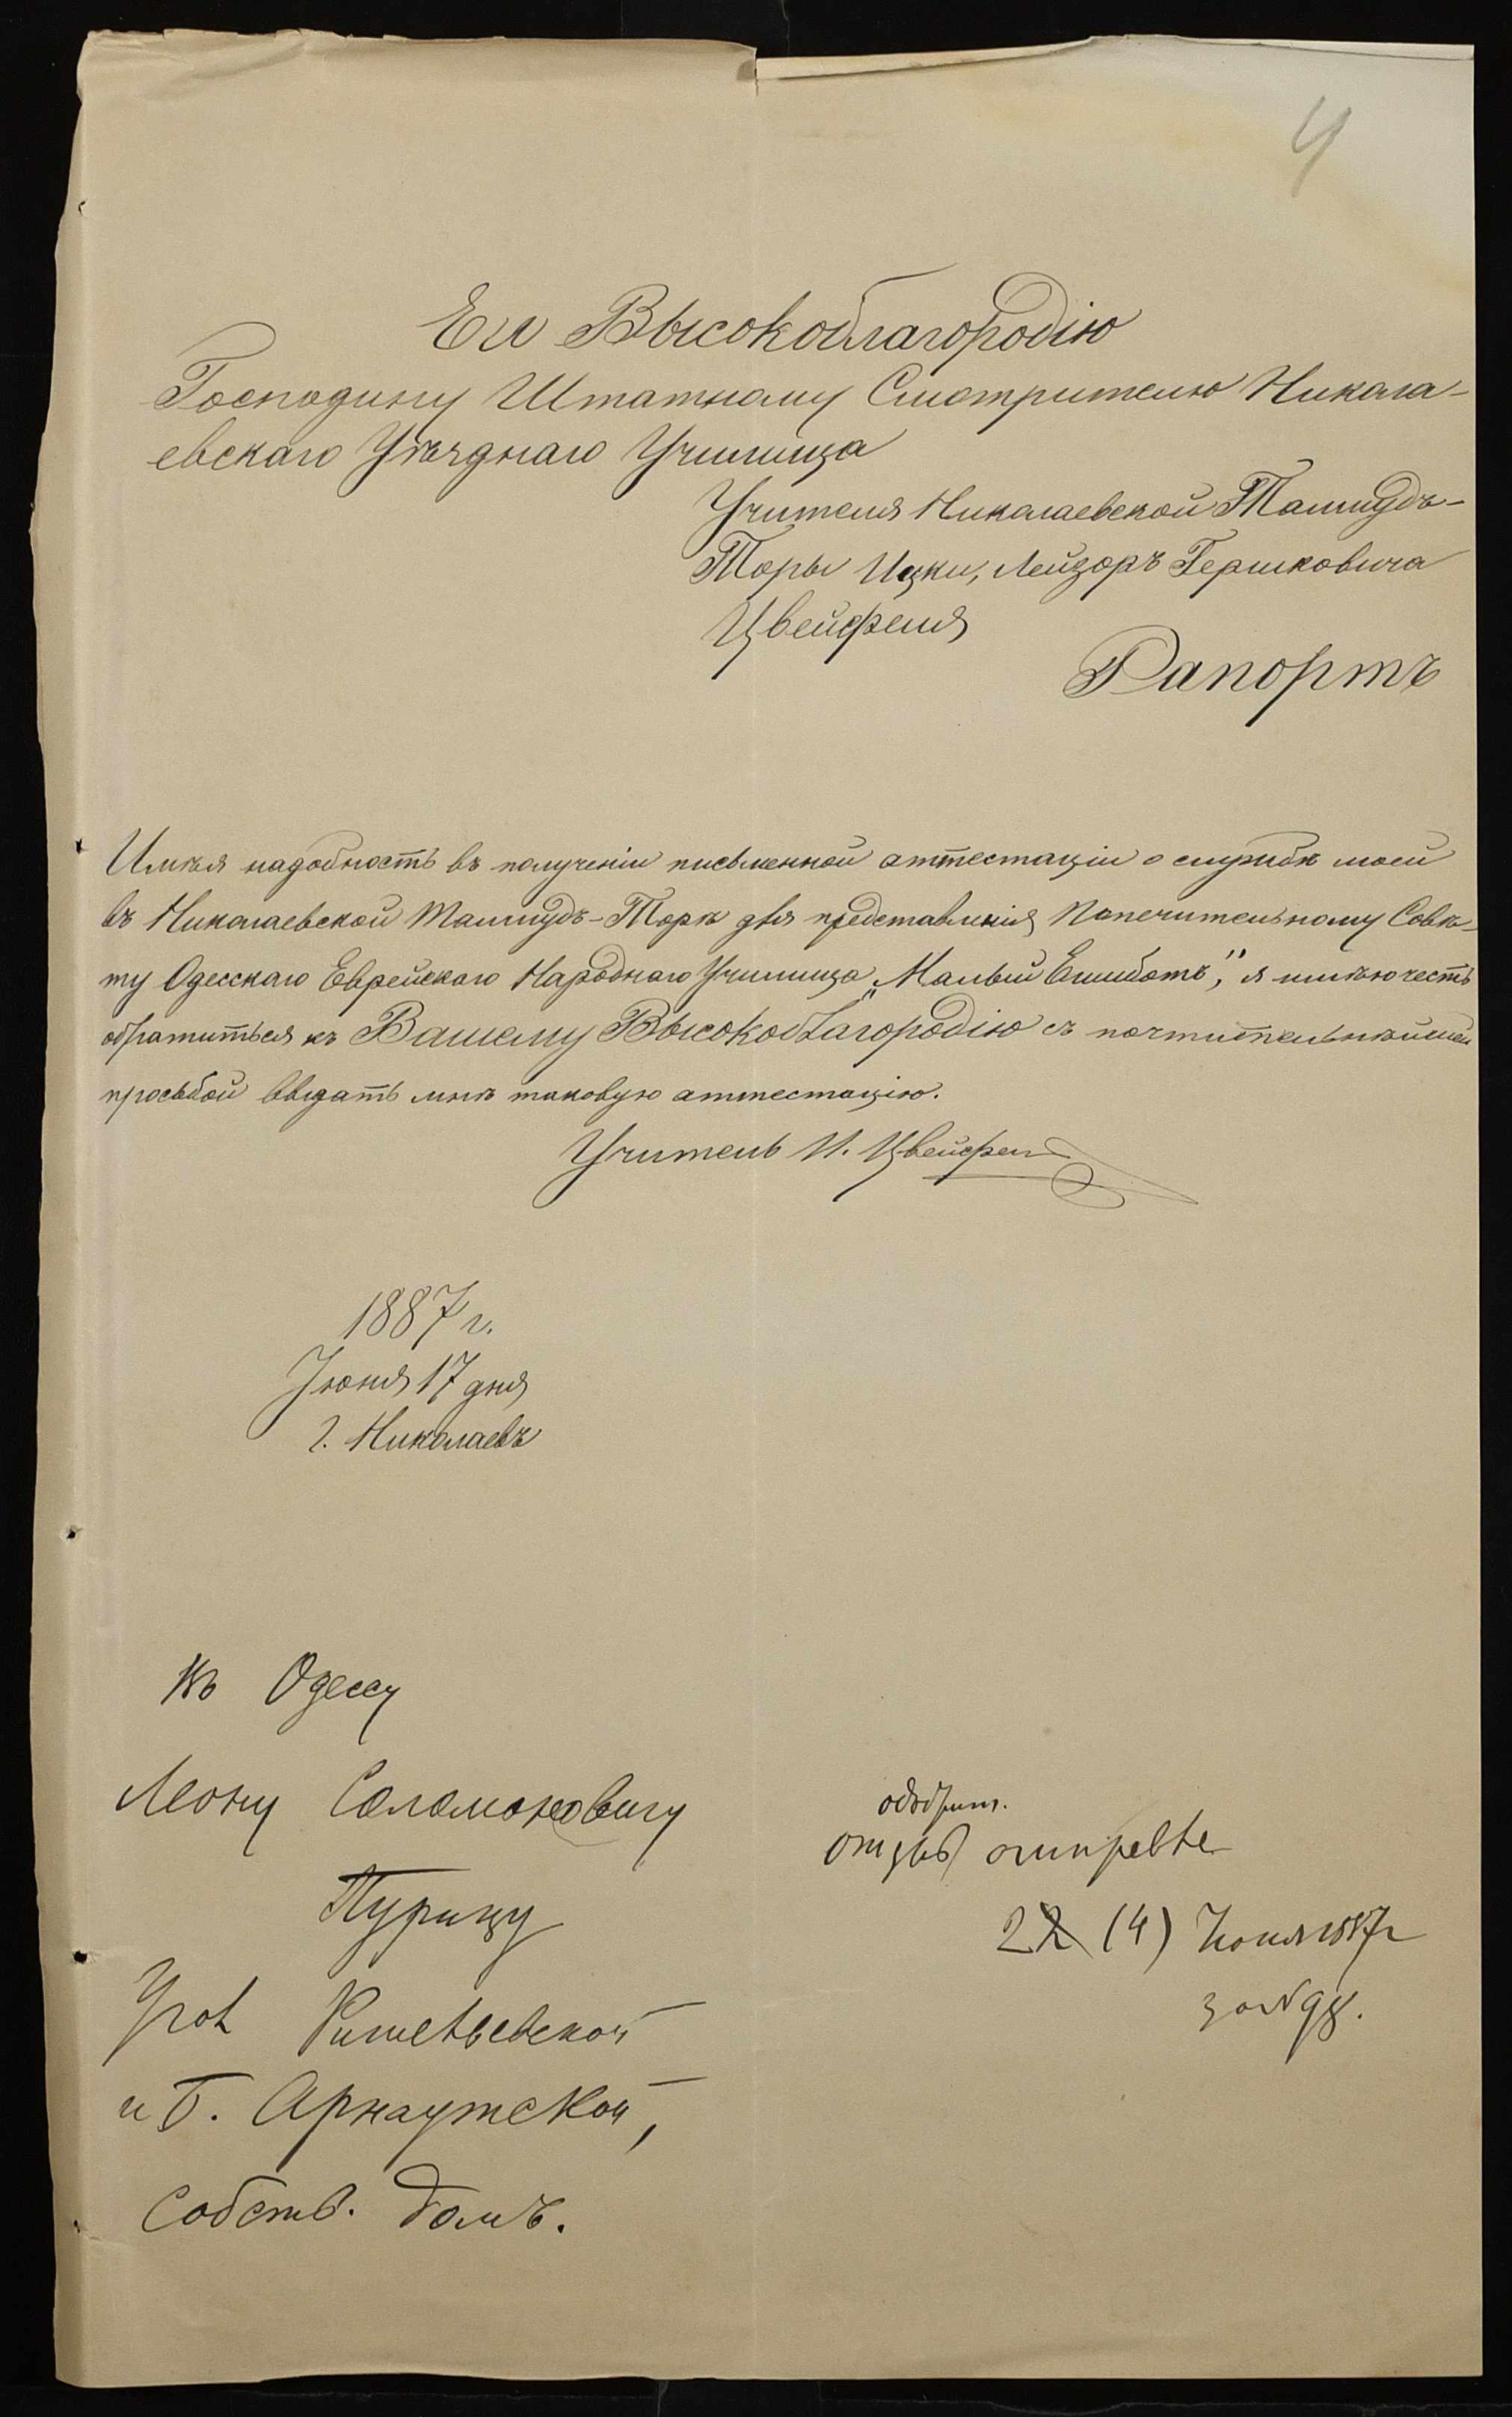 4
Его Высокоблагородію
Господину Штатному Смотрителю Никола-
евскаго Уѣзднаго Училища
Учителя Николаевской Талмудъ-
Торы Ицки, Лейзоръ Гершковича
Цвейфеля
Рапортъ
Имѣя надобность въ полученіи письменной аттестаціи о службѣ моей
въ Николаевской Талмудъ-Торѣ для представленія Попечительному Совѣ-
ту Одесскаго Еврейскаго Народнаго Училища „Малый Ешиботъ", я имѣю честь
обратиться къ Вашему Высокоблагородію съ почтительнѣйшей
просьбой выдать мнѣ таковую аттестацію.
Учитель И. Цвейфель
1887 г.
Іюня 17 дня
г. Николаевъ
Въ Одессу
Леону Соломоновичу
Пурицу
Угол Ришельевской
и Б. Арнаутской,
собств. домъ.
одобрит.
отзыв отправле
22 (4) Іюня 1887 г
за № 98.